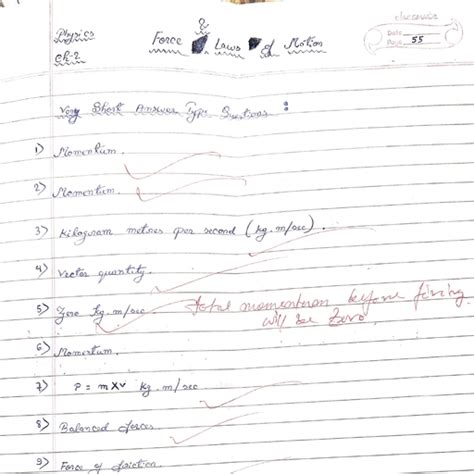 Physics
Ch-2
Force & Laws of Motion
Date
Page 55
Very Short Answer Type Questions :
1) Momentum.
2) Momentum.
3) Kilogram metres per second (kg.m/sec).
4) Vector quantity.
5) Zero kg.m/sec. total momentum before firing
will be zero.
6) Momentum.
7) P = m×v kg.m/sec
8) Balanced forces.
9) Force of friction.